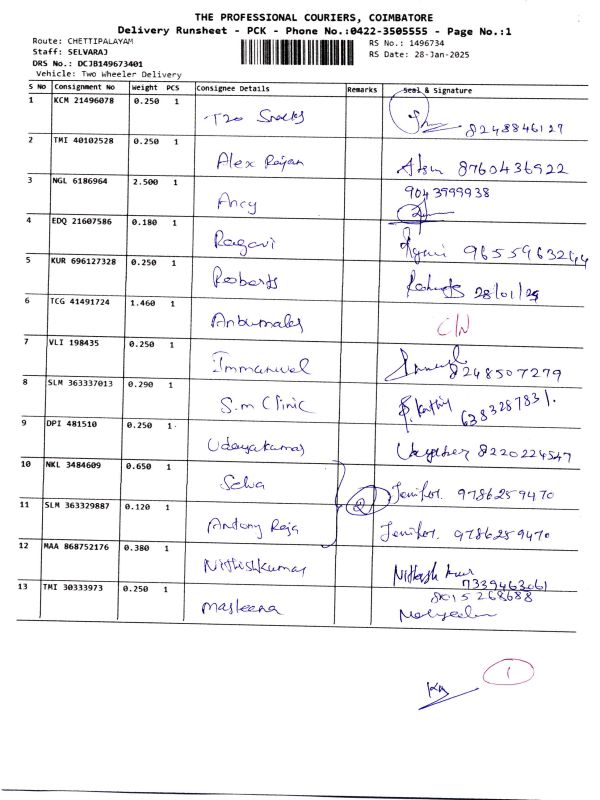 THE PROFESSIONAL COURIERS, COIMBATORE
Delivery Runsheet - PCK - Phone No.:0422-3505555 - Page No.:1
Route: CHETTIPALAYAM
RS No.: 1496734
Staff: SELVARAJ
RS Date: 28-Jan-2025
DRS No.: DCJB149673401
Vehicle: Two Wheeler Delivery
S No Consignment No Weight PCS Consignee Details Remarks Seal & Signature
1 KCM 21496078 0.250 1
T20 Snacks 8248846127
2 TMI 40102528 0.250 1
Alex Rajan 8760436922
3 NGL 6186964 2.500 1 9043999938
Ancy
4 EDQ 21607586 0.180 1
Ragavi 9655963244
5 KUR 696127328 0.250 1
Roberts 28/01/25
6 TCG 41491724 1.460 1
Anbumales C/N
7 VLI 198435 0.250 1
Immanuel 8248507279
8 SLM 363337013 0.290 1
S.m Clinic 6383287831.
9 DPI 481510 0.250 1
Udayakumar 8220224547
10 NKL 3484609 0.650 1
Selva Jenifer. 9786259470
11 SLM 363329887 0.120 1
Antony Raja Jenifer. 9786259470
12 MAA 868752176 0.380 1
Nitheshkumar 7339463061
13 TMI 30333973 0.250 1 8015268688
Masleena
1